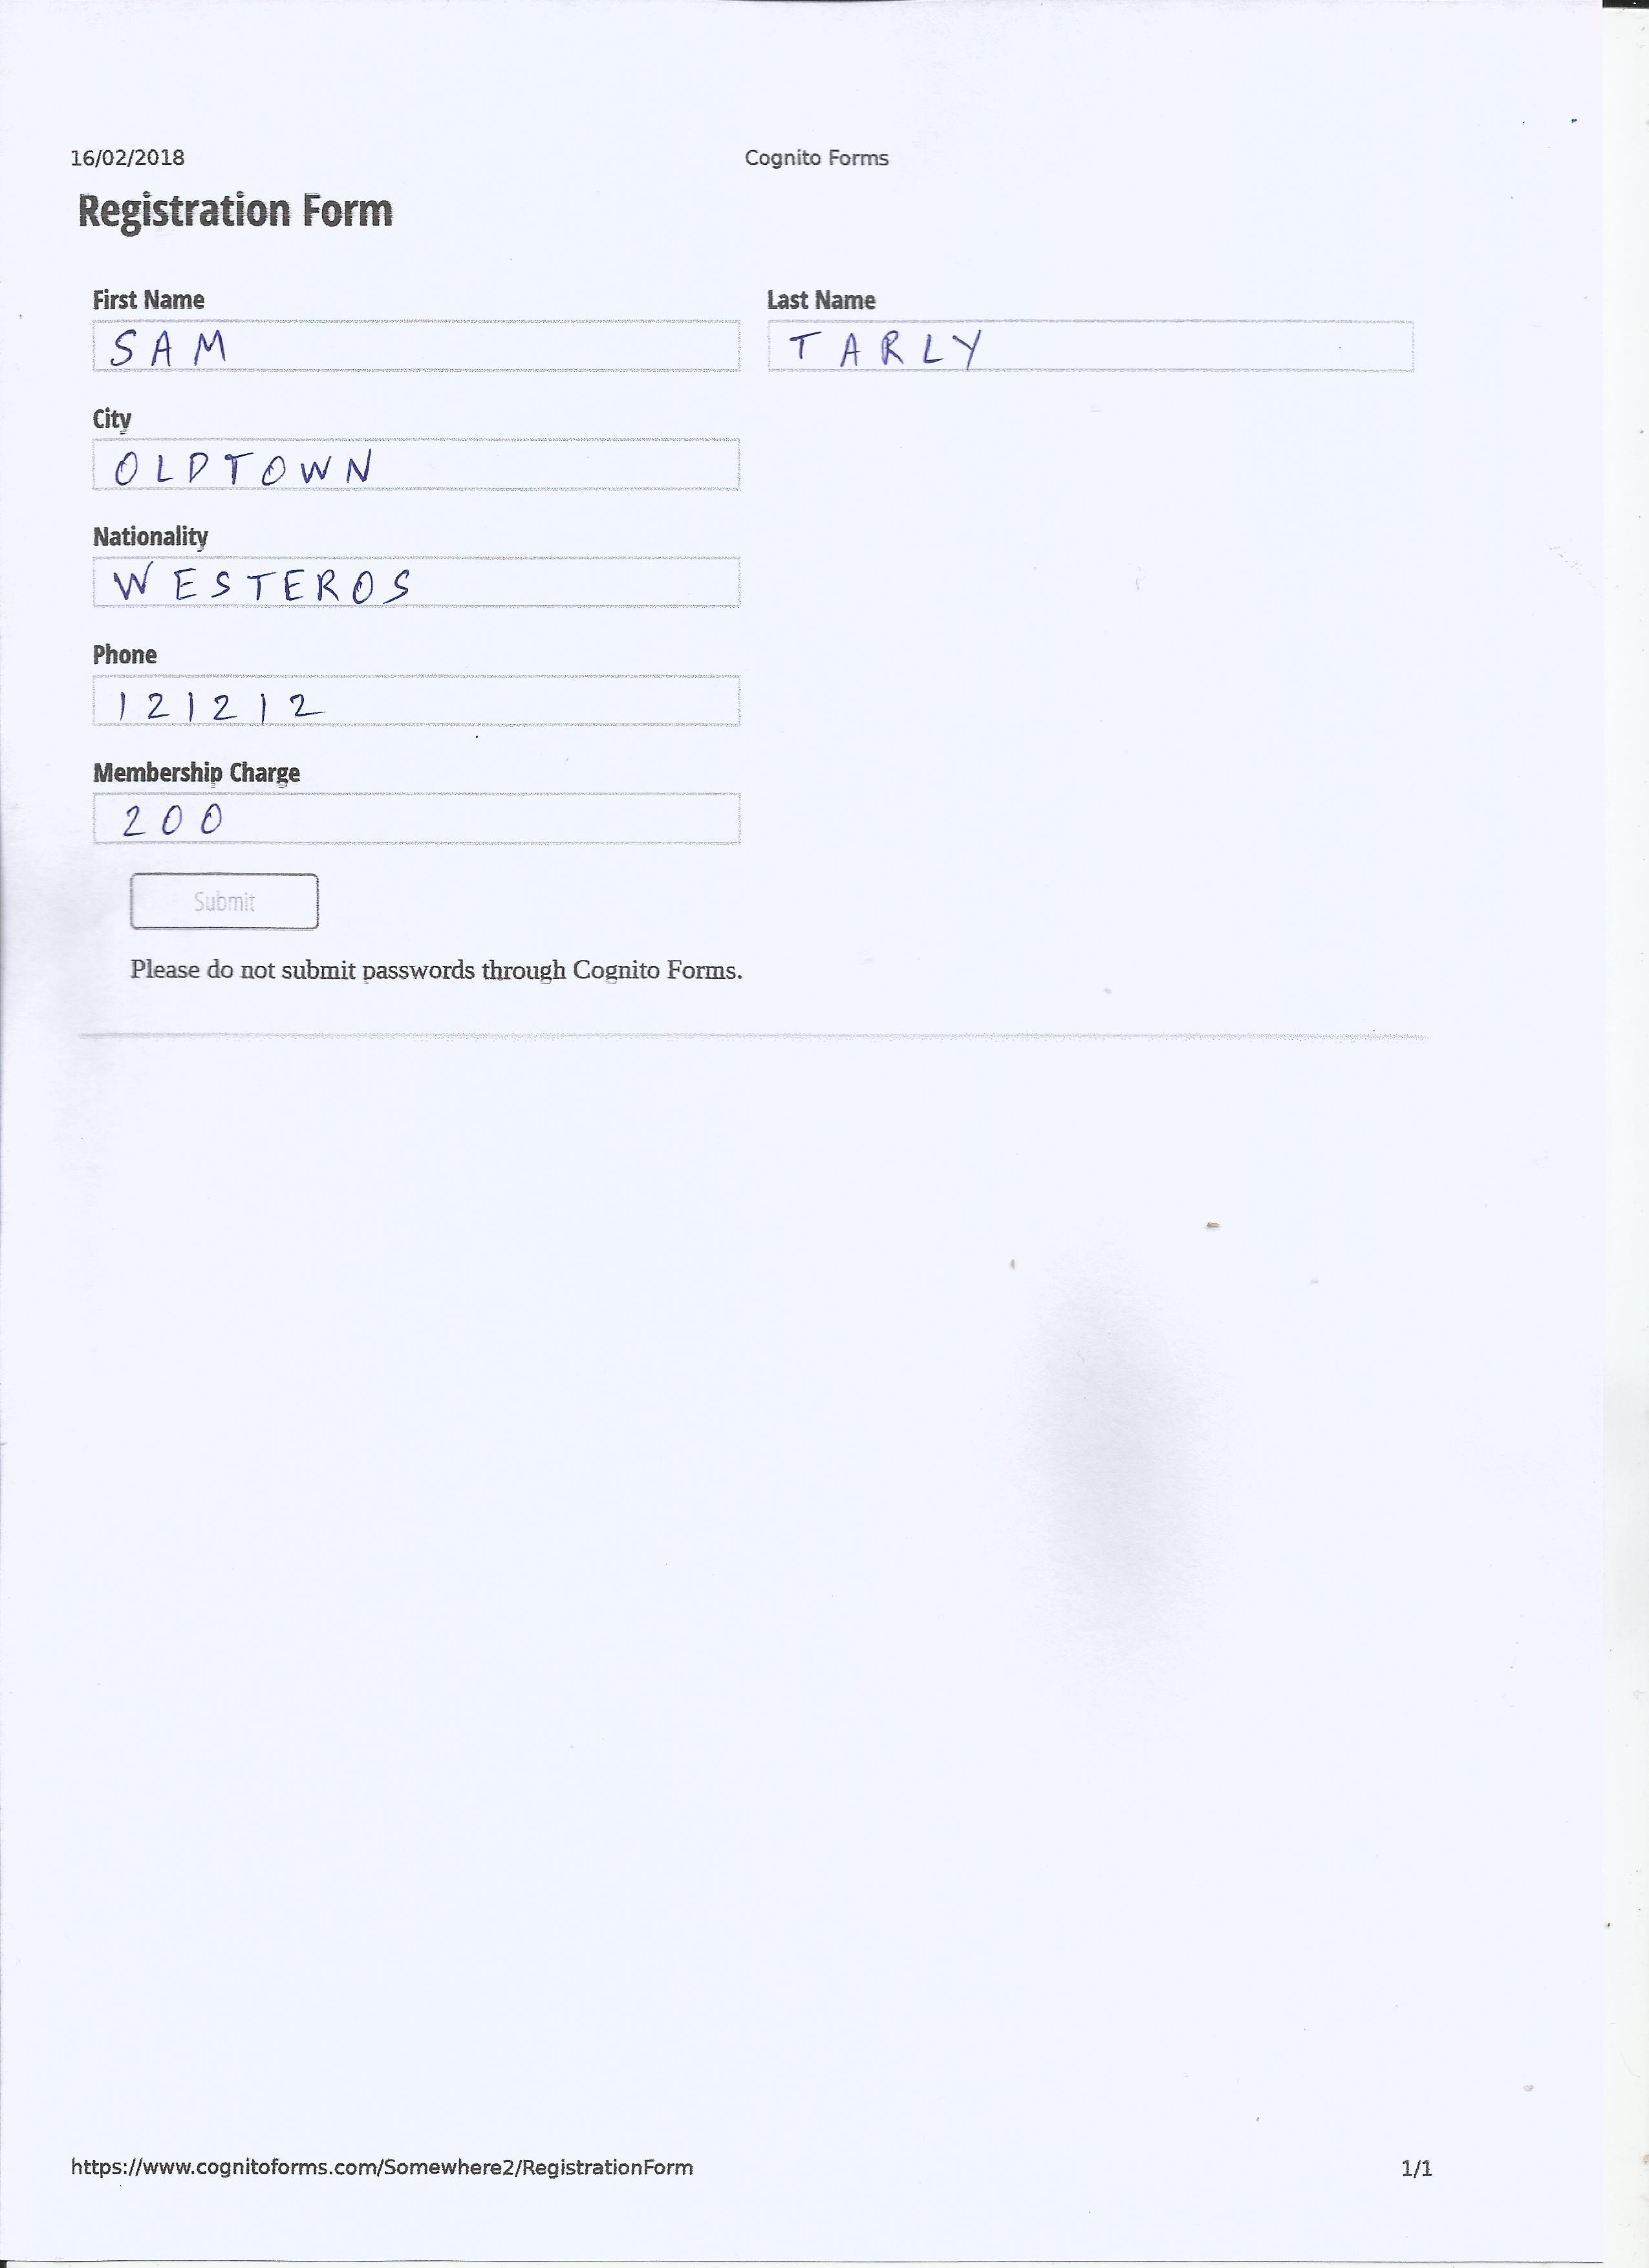 16/02/2018 Cognito Forms
Registration Form
First Name Last Name
SAM TARLY
City
OLDTOWN
Nationality
WESTEROS
Phone
121212
Membership Charge
200
Submit
Please do not submit passwords through Cognito Forms.
https://www.cognitoforms.com/Somewhere2/RegistrationForm 1/1